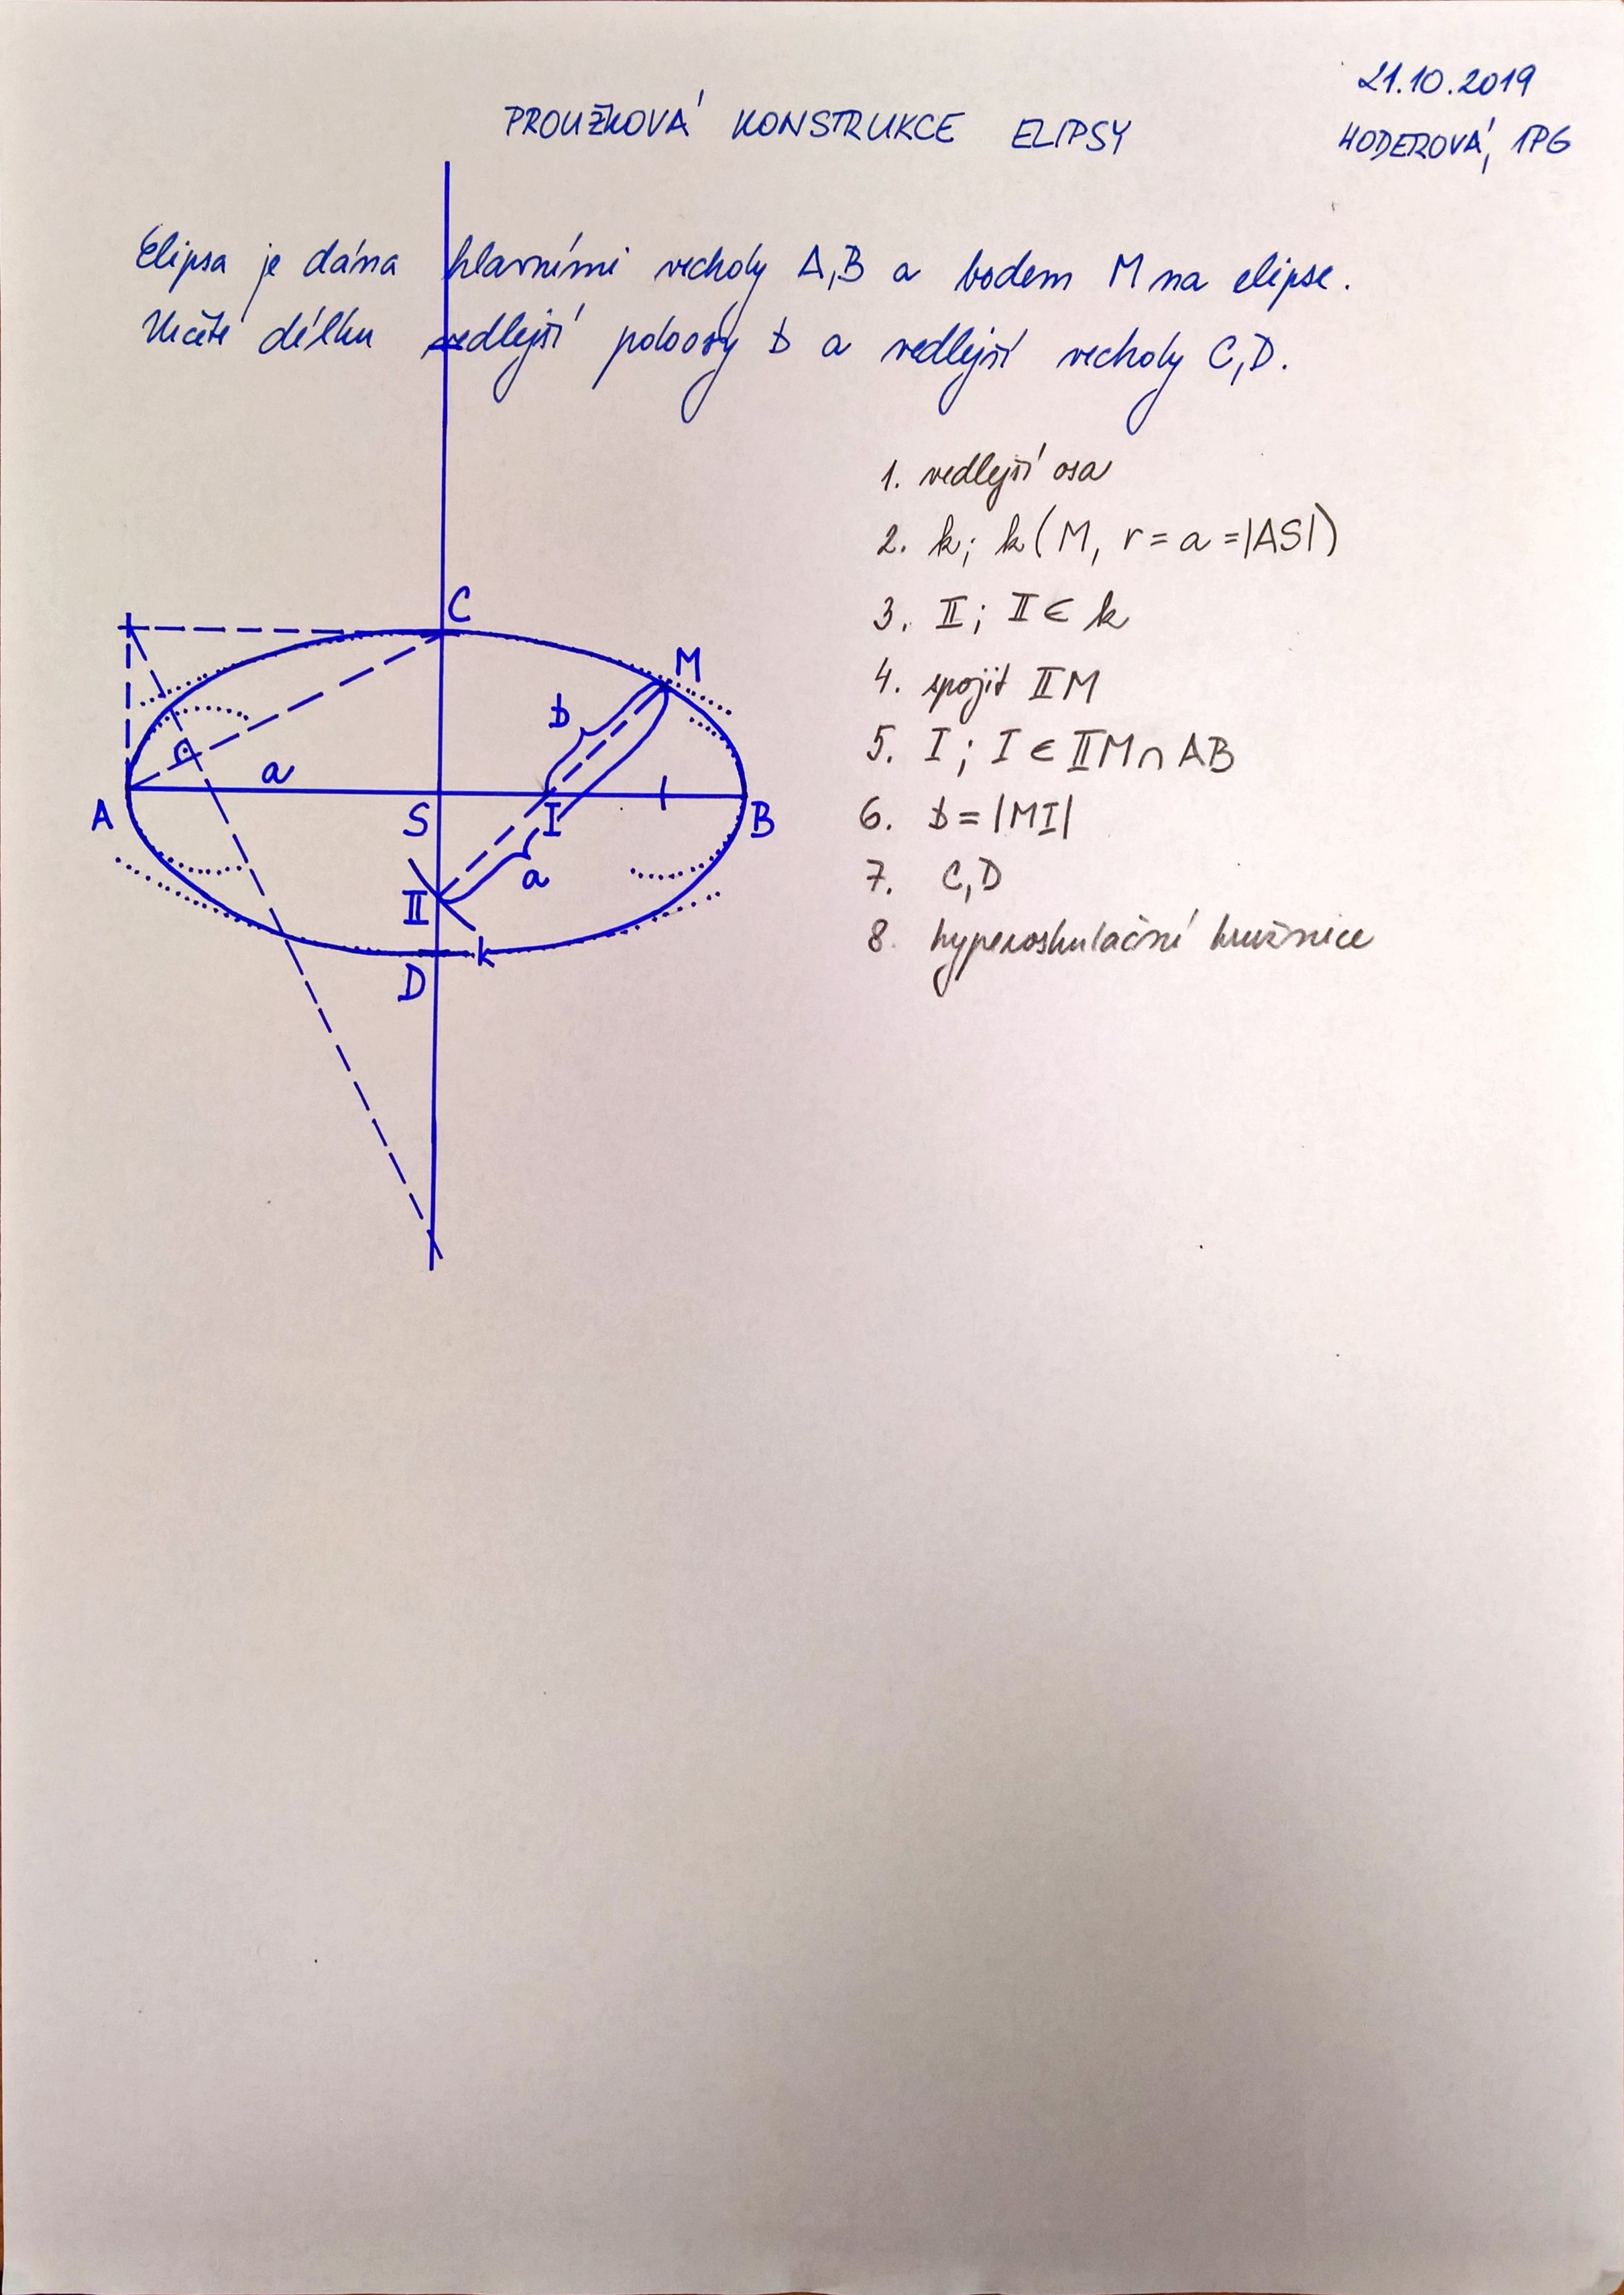 21.10.2019
PROUŽKOVÁ KONSTRUKCE ELIPSY
HODEROVÁ, 1PG
Elipsa je dána hlavními vrcholy A,B a bodem M na elipse.
Určete délku vedlejší poloosy b a vedlejší vrcholy C,D.
1. vedlejší osa
2. k; k(M, r = a = |AS|)
3. II; II ∈ k
4. spojit IIM
5. I; I ∈ IIM ∩ AB
6. b = |MI|
7. C,D
8. hyperoskulační kružnice
C
M
b
a
A
S
I
B
a
II
k
D